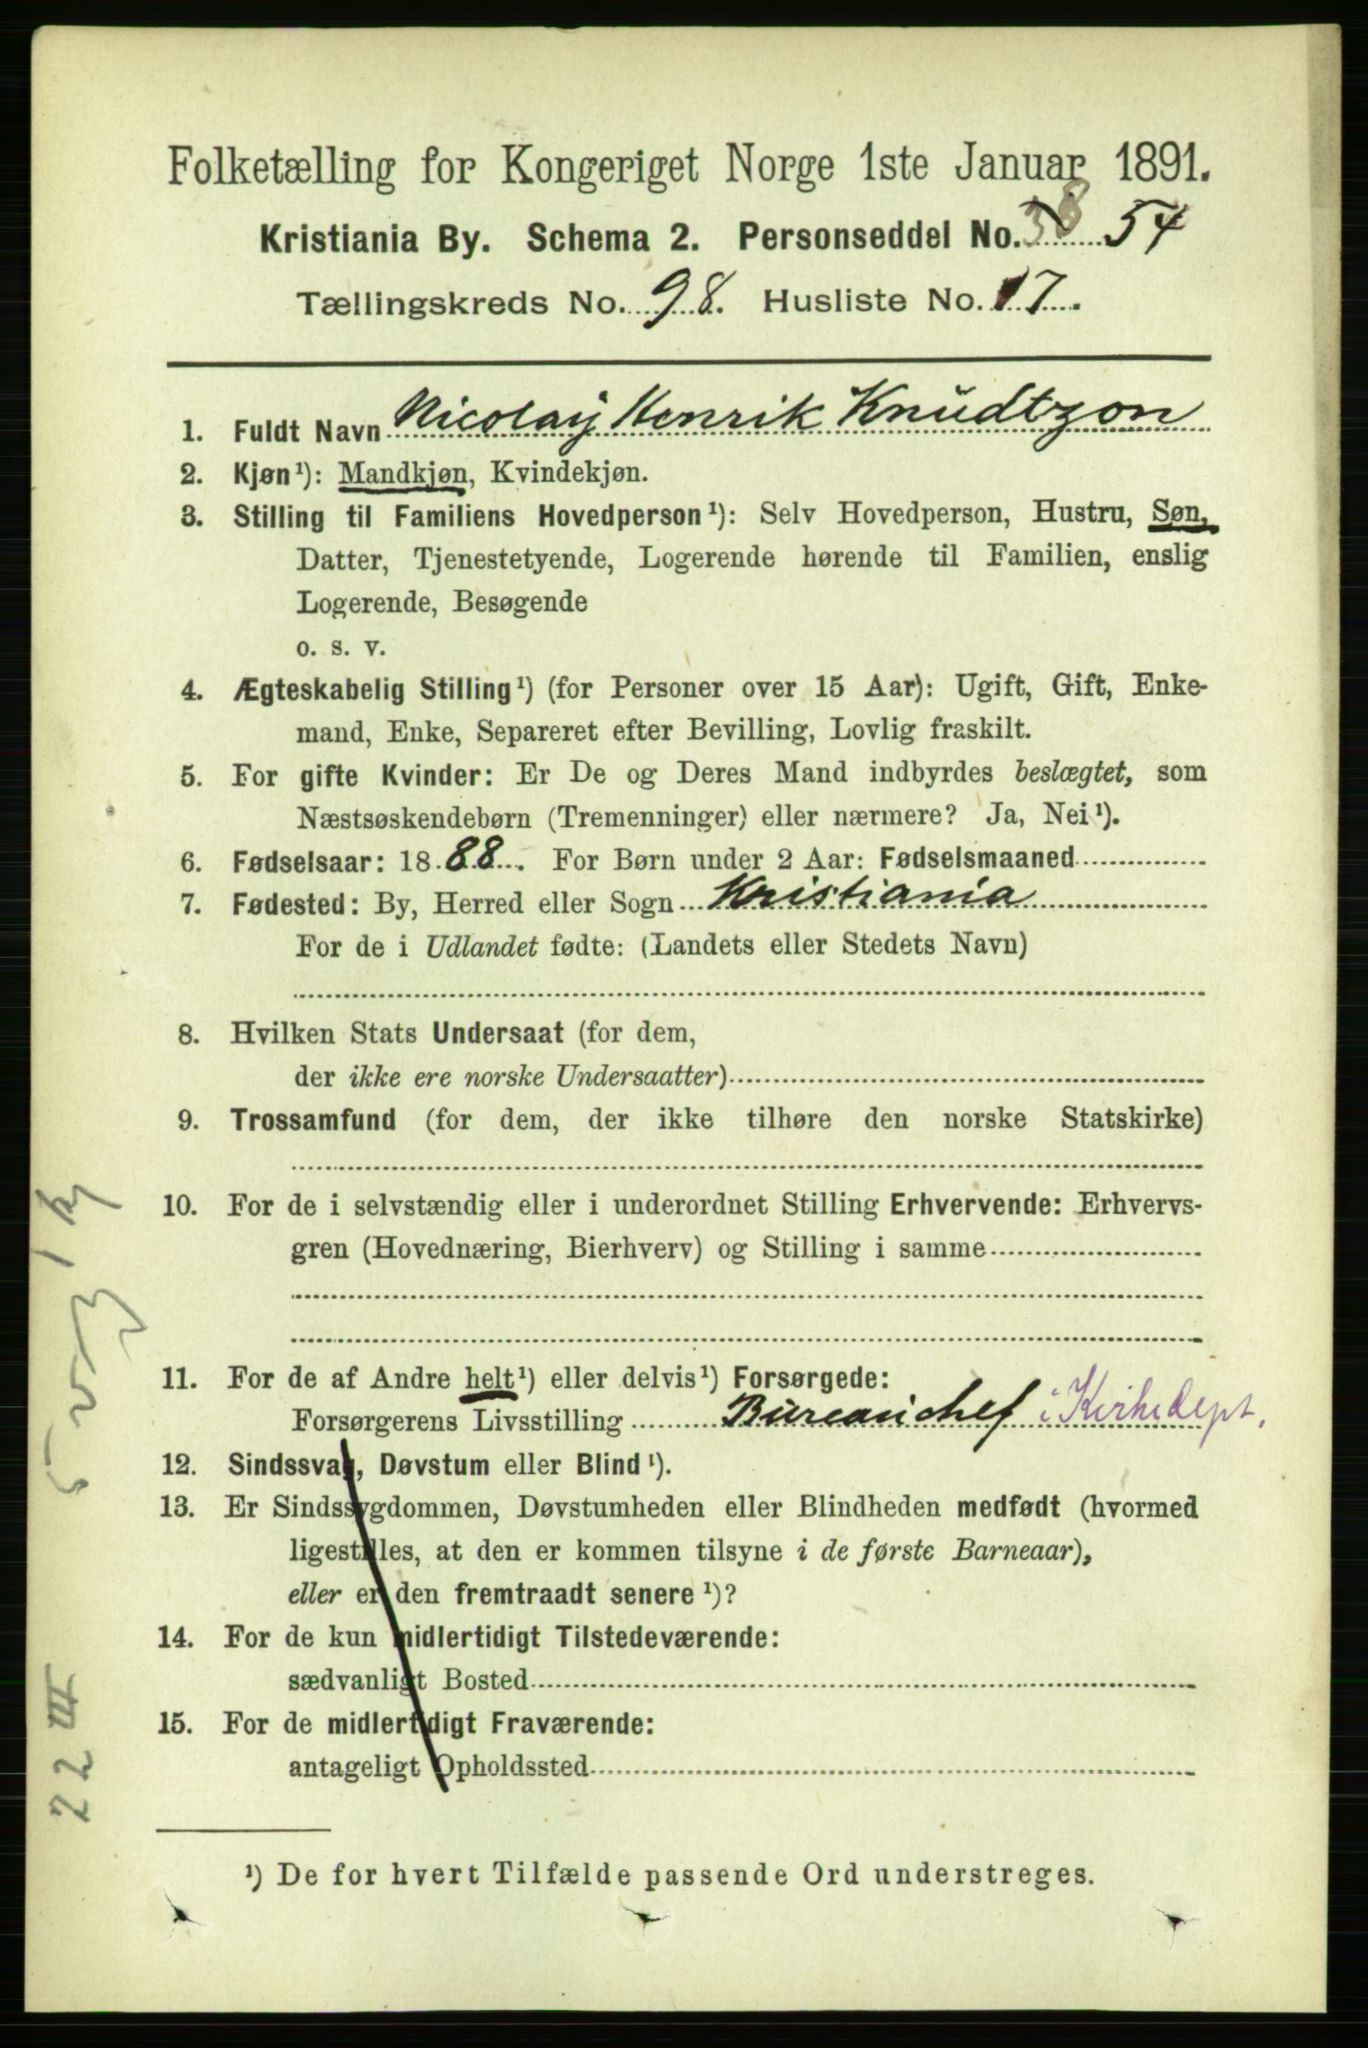 Folketælling for Kongeriget Norge 1ste Januar 1891.
Kristiania By. Schema 2. Personseddel No. 54
Tællingskreds No. 98. Husliste No. 17.
1. Fuldt Navn Nicolay Henrik Knudtzon
2. Kjøn¹): Mandkjøn, Kvindekjøn.
3. Stilling til Familiens Hovedperson¹): Selv Hovedperson, Hustru, Søn,
Datter, Tjenestetyende, Logerende hørende til Familien, enslig
Logerende, Besøgende
o. s. v.
4. Ægteskabelig Stilling¹) (for Personer over 15 Aar): Ugift, Gift, Enke-
mand, Enke, Separeret efter Bevilling, Lovlig fraskilt.
5. For gifte Kvinder: Er De og Deres Mand indbyrdes beslægtet, som
Næstsøskendebørn (Tremenninger) eller nærmere? Ja, Nei¹).
6. Fødselsaar: 1888. For Børn under 2 Aar: Fødselsmaaned
7. Fødested: By, Herred eller Sogn Kristiania
For de i Udlandet fødte: (Landets eller Stedets Navn)
8. Hvilken Stats Undersaat (for dem,
der ikke ere norske Undersaatter)
9. Trossamfund (for dem, der ikke tilhøre den norske Statskirke)
10. For de i selvstændig eller i underordnet Stilling Erhvervende: Erhvervs-
gren (Hovednæring, Bierhverv) og Stilling i samme
11. For de af Andre helt¹) eller delvis¹) Forsørgede:
Forsørgerens Livsstilling Bureauchef i Kirkedept.
12. Sindssvag, Døvstum eller Blind¹).
13. Er Sindssygdommen, Døvstumheden eller Blindheden medfødt (hvormed
ligestilles, at den er kommen tilsyne i de første Barneaar),
eller er den fremtraadt senere¹)?
14. For de kun midlertidigt Tilstedeværende:
sædvanligt Bosted
15. For de midlertidigt Fraværende:
antageligt Opholdssted
¹) De for hvert Tilfælde passende Ord understreges.
22 III